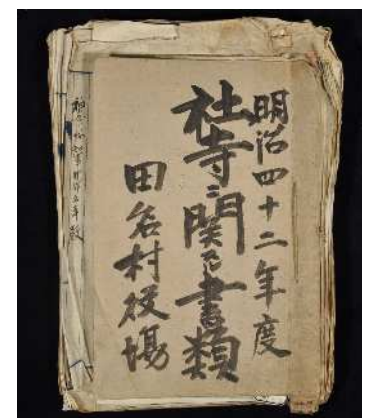 明治四十二年度
社寺ニ関スル書類
田名村役場